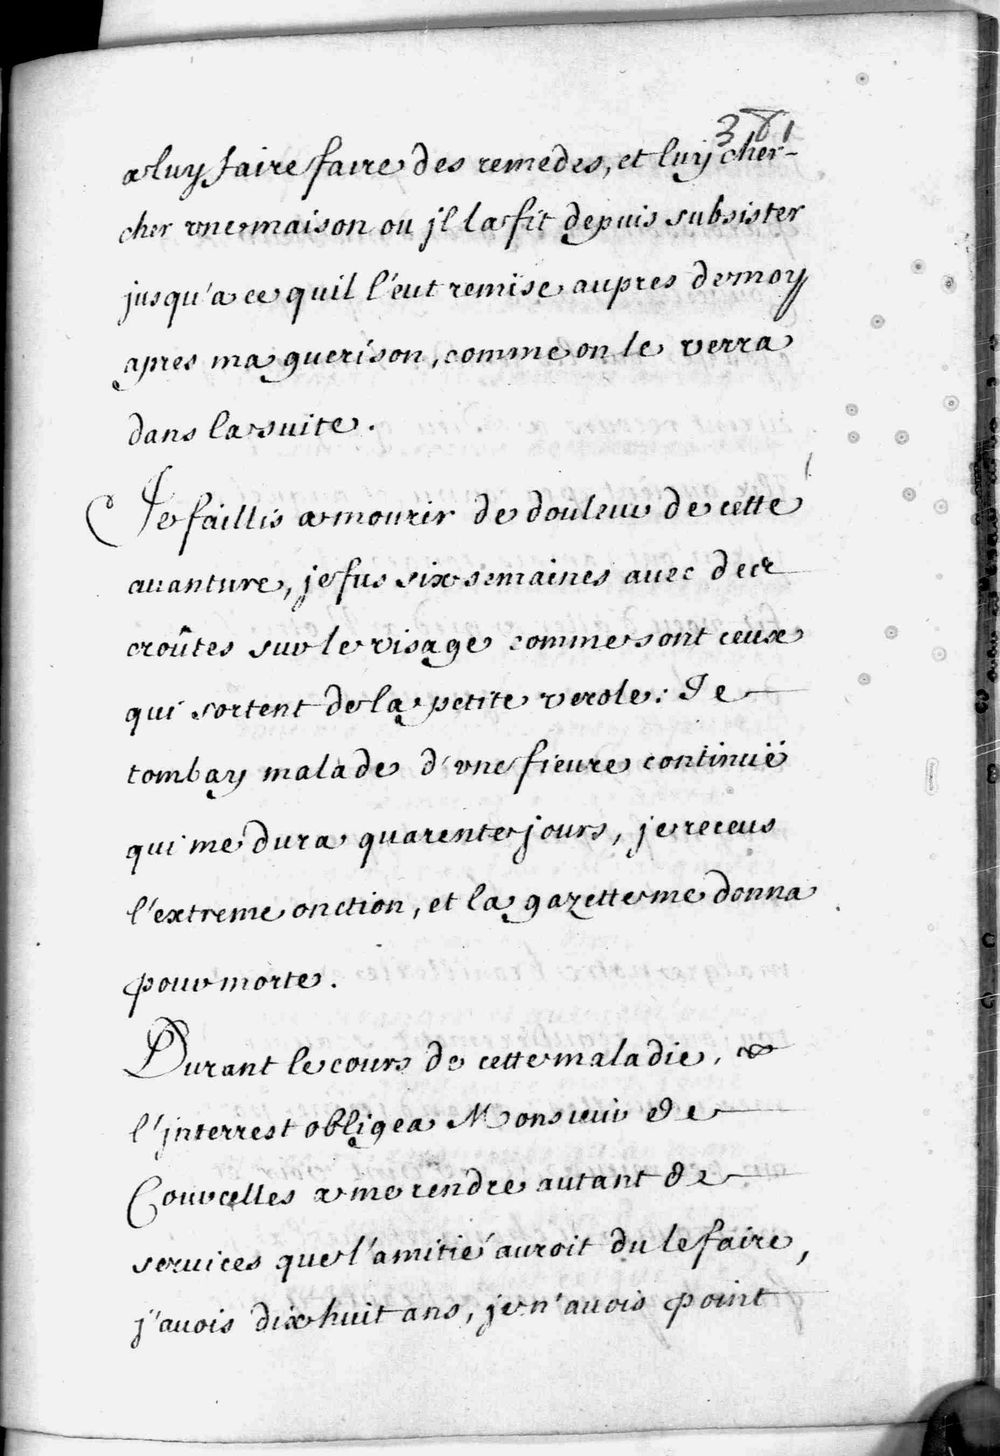 381
a luy faire faire des remedes, et luy cher-
cher vne maison ou jl la fit depuis subsister
jusqu'a ce quil l'eut remise aupres de moy
apres ma guerison, comme on le verra
dans la suite.
Je faillis a mourir de douleur de cette
auanture, je fus six semaines auec des
croûtes sur le visage comme sont ceux
qui sortent de la petite verole: Je
tombay malade d'vne fieure continuë
qui me dura quarente jours, je receus
l'extreme onction, et la gazette me donna
pour morte.
Durant le cours de cette maladie,
l'jnterrest obligea Monsieur de
Courcelles a me rendre autant de
seruices que l'amitié auroit du le faire,
j'auois dix huit ans, je n'auois point